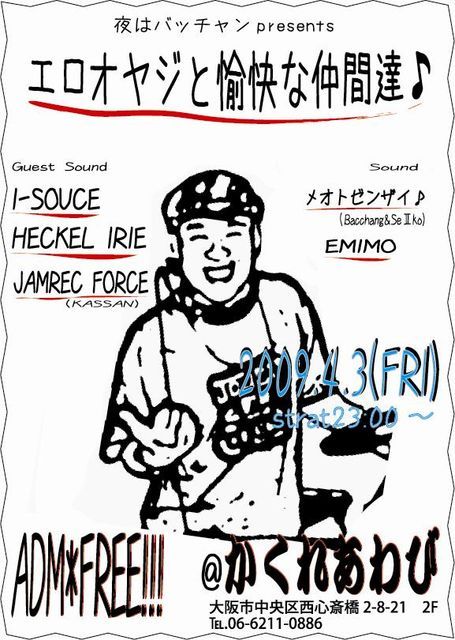 夜はバッチャン presents
エロオヤジと愉快な仲間達♪
Guest Sound
I-SOUCE
HECKEL IRIE
JAMREC FORCE
(KASSAN)
Sound
メオトゼンザイ♪
(Bacchang&SeⅡko)
EMIMO
2009.4.3(FRI)
strat23:00 ～
ADM*FREE!!!!
@かくれあわび
大阪市中央区西心斎橋 2-8-21 2F
TEL.06-6211-0886